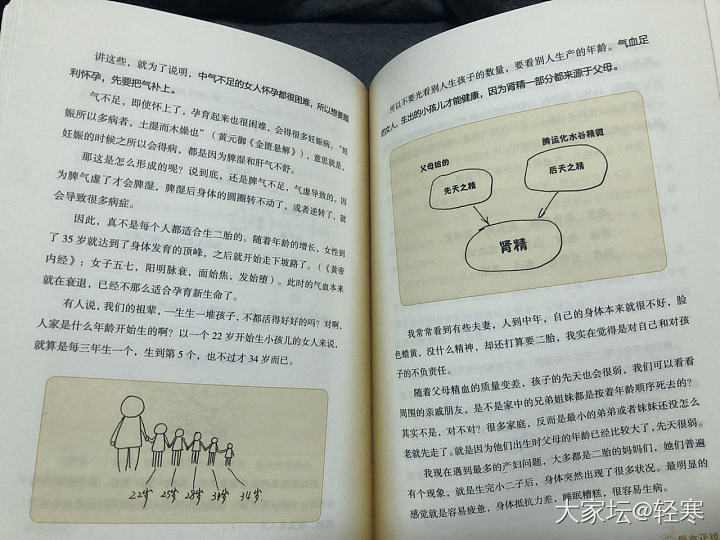 讲这些，就为了说明，中气不足的女人怀孕都很困难，所以想要顺
利怀孕，先要把气补上。
气不足，即使怀上了，孕育起来也很困难，会得很多妊娠病。“妊
娠所以多病者，土湿而木燥也”（黄元御《金匮悬解》），意思就是，
妊娠的时候之所以会得病，都是因为脾湿和肝气不舒。
那这是怎么形成的呢？说到底，还是脾气不足，气虚导致的。因
为脾气虚了才会脾湿，脾湿后身体的圆圈转不动了，或者逆转了，就
会导致很多病症。
因此，真不是每个人都适合生二胎的。随着年龄的增长，女性到
了 35 岁就达到了身体发育的顶峰，之后就开始走下坡路了。（《黄帝
内经》：女子五七，阳明脉衰，面始焦，发始堕）。此时的气血本来
就在衰退，已经不那么适合孕育新生命了。
有人说，我们的祖辈，一生生一堆孩子，不都活得好好的吗？对啊，
人家是什么年龄开始生的啊？以一个 22 岁开始生小孩儿的女人来说，
就算是每三年生一个，生到第 5 个，也不过才 34 岁而已。
22岁 25岁 28岁 31岁 34岁
所以不要光看别人生孩子的数量，要看别人生产的年龄。气血足
的女人，生出的小孩儿才能健康，因为肾精一部分都来源于父母。
父母给的
脾运化水谷精微
先天之精
后天之精
肾精
我常常看到有些夫妻，人到中年，自己的身体本来就很不好，脸
色蜡黄，没什么精神，却还打算要二胎，我实在觉得是对自己和对孩
子的不负责任。
随着父母精血的质量变差，孩子的先天也会很弱，我们可以看看
周围的亲戚朋友，是不是家中的兄弟姐妹都是按着年龄顺序死去的？
其实不是，对不对？很多家庭，反而是最小的弟弟或者妹妹还没怎么
老就先走了。就是因为他们出生时父母的年龄已经比较大了，先天很弱。
我现在遇到最多的产妇问题，大多都是二胎的妈妈们，她们普遍
有个现象，就是生完小二子后，身体突然出现了很多状况。最明显的
感觉就是容易疲惫，身体抵抗力差，睡眠糟糕，很容易生病。
大家坛@轻寒